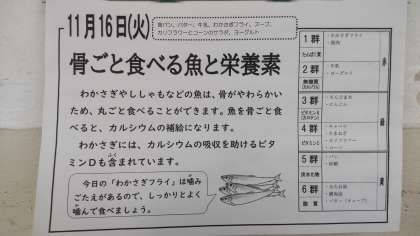 11月16日(火)
食パン、バター、牛乳、わかさぎフライ、スープ、
カリフラワーとコーンのサラダ、ヨーグルト
骨ごと食べる魚と栄養素
わかさぎやししゃもなどの魚は、骨がやわらかい
ため、丸ごと食べることができます。魚を骨ごと食
べると、カルシウムの補給になります。
わかさぎには、カルシウムの吸収を助けるビタ
ミンDも含まれています。
今日の「わかさぎフライ」は噛み
ごたえがあるので、しっかりとよく
噛んで食べましょう。
1群
たんぱく質
・わかさぎフライ
2群
無機質
(カルシウム)
・牛乳
・ヨーグルト
3群
ビタミンA
(カロテン)
・にんじん
4群
ビタミンC
・キャベツ
・たまねぎ
・カリフラワー
・コーン
5群
炭水化物
・パン
・砂糖
6群
脂質
赤
緑
黄